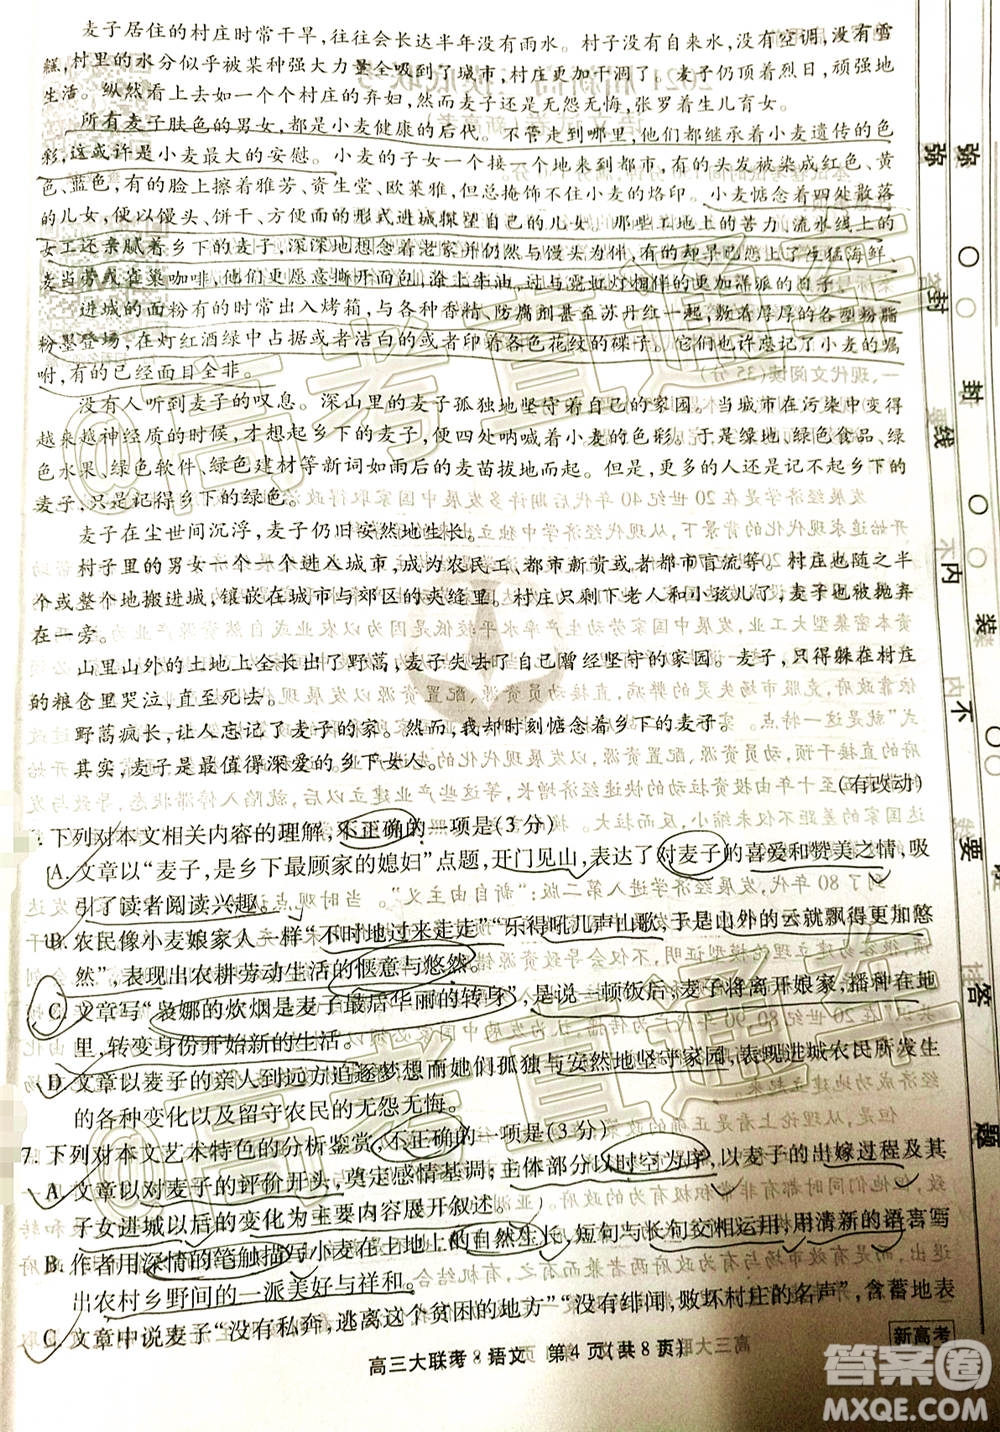 麦子居住的村庄时常干旱，往往会长达半年没有雨水。村子没有自来水，没有空调，没有雪
糕，村里的水分似乎被某种强大力量全吸向了城市，村庄干涸了！麦子仍面对着烈日，顽强地
生活。纵然是如此，麦子如一个个村庄的弃妇，还是无怨无悔，张罗着生儿育女。
所有麦子肤色的男女，都是小麦健康的后代。不管走到哪里，他们都继承着小麦遗传的色
彩，这或许是小麦最大的安慰。小麦的子女一个个地来到都市，有的头发被染成红色、黄
色、蓝色，有的脸上擦着雅芳、资生堂、欧莱雅，但总掩饰不住小麦的烙印。小麦惦念着四处散落
的儿女，以馒头、饼干、方便面的形式进城探望自己的儿女。那些工地上的苦力、流水线上的
女工还亲腻着乡下的麦子，深深地惦念着老家并仍然以馒头为主食。而更多的与生猛海鲜、
麦当劳或雀巢咖啡，他们更愿意撕开面包，涂上牛油，过着与霓虹灯相伴的更加洋派的日子。
进城的面粉有的时常出入烤箱，与色素、防腐剂甚至苏丹红一起，敷着厚厚的各种型号脂
粉墨登场，在灯红酒绿中占据了一个个洁白的或者印着各色花纹的碟子。它们也许忘记了小麦的嘱
咐，有的已经面目全非。
没有人听到麦子的叹息。深山里的麦子孤独地坚守着自己的家园。当城市在污染中变得
越来越神经质的时候，才想起乡下的麦子，便四处呐喊着小麦的色彩。于是绿地、绿色食品、绿
色水果、绿色软件、绿色建材等新词如雨后的麦苗拔地而起。但人们从来不会记起乡下的
麦子，只是记住了乡下的绿色。
麦子在尘世间沉浮，麦子仍旧安然地生长。
村子里的男女一个一个进入城市，成为农民工、都市新贵或者都市盲流等。村庄随之半
个或整个地搬进城，镶嵌在城市与郊区的夹缝里。村庄只剩下老人和小孩儿了，麦子也被抛弃
在一旁。
山里山外的土地上全长出了野蒿，麦子失去了自己曾经坚守的家园。麦子，只得躲在村庄
的粮仓里哭泣，直至死去。
野蒿疯长，让人忘记了麦子的家。然而，我却时刻惦念着乡下的麦子。
其实，麦子是我今世最值得深爱的乡下女人。
（有改动）
6. 下列对本文相关内容的理解，不正确的一项是(3 分)
A. 文章以“麦子，是乡下最顾家的媳妇”点题，开门见山，表达了对麦子的喜爱和赞美之情，吸
引了读者阅读兴趣。
B. 农民像小麦娘家人一样“不时地过来走走”“乐得吼几声山歌，于是山外的云就飘得更加悠
然”，表现出农耕劳动生活的惬意与悠然。
C. 文章写“袅娜的炊烟是麦子最后华丽的转身”，是说一顿饭后，麦子将离开娘家，播种在地
里，转变身份开始新的生活。
D. 文章以麦子的亲人到远方追逐梦想而她们孤独与安然地坚守家园，表现进城农民所发生
的各种变化以及留守农民的无怨无悔。
7. 下列对本文艺术特色的分析鉴赏，不正确的一项是(3 分)
A. 文章以对麦子的评价开头，奠定感情基调；主体部分以时空为序，以麦子的出嫁过程及其
子女进城以后的变化为主要内容展开叙述。
B. 作者用深情的笔触描写小麦在土地上的自然生长，短句与长句交相运用，用清新的语言写
出农村乡野间的一派美好与祥和。
C. 文章中说麦子“没有私奔，逃离这个贫困的地方”“没有绯闻，败坏村庄的名声”，含蓄地表
新高考
高三大联考·语文 第 4 页（共 8 页）
弥 封 线 内 不 要 答 题
弥 封 装
@高考直通车
答案圈
MXQE.COM